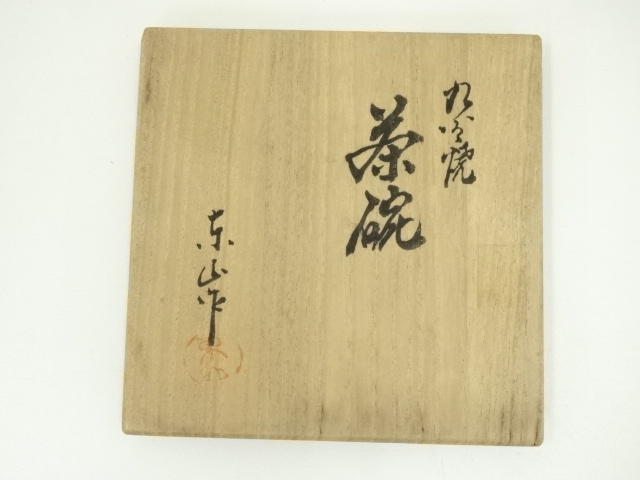 九谷焼
茶碗
東山作